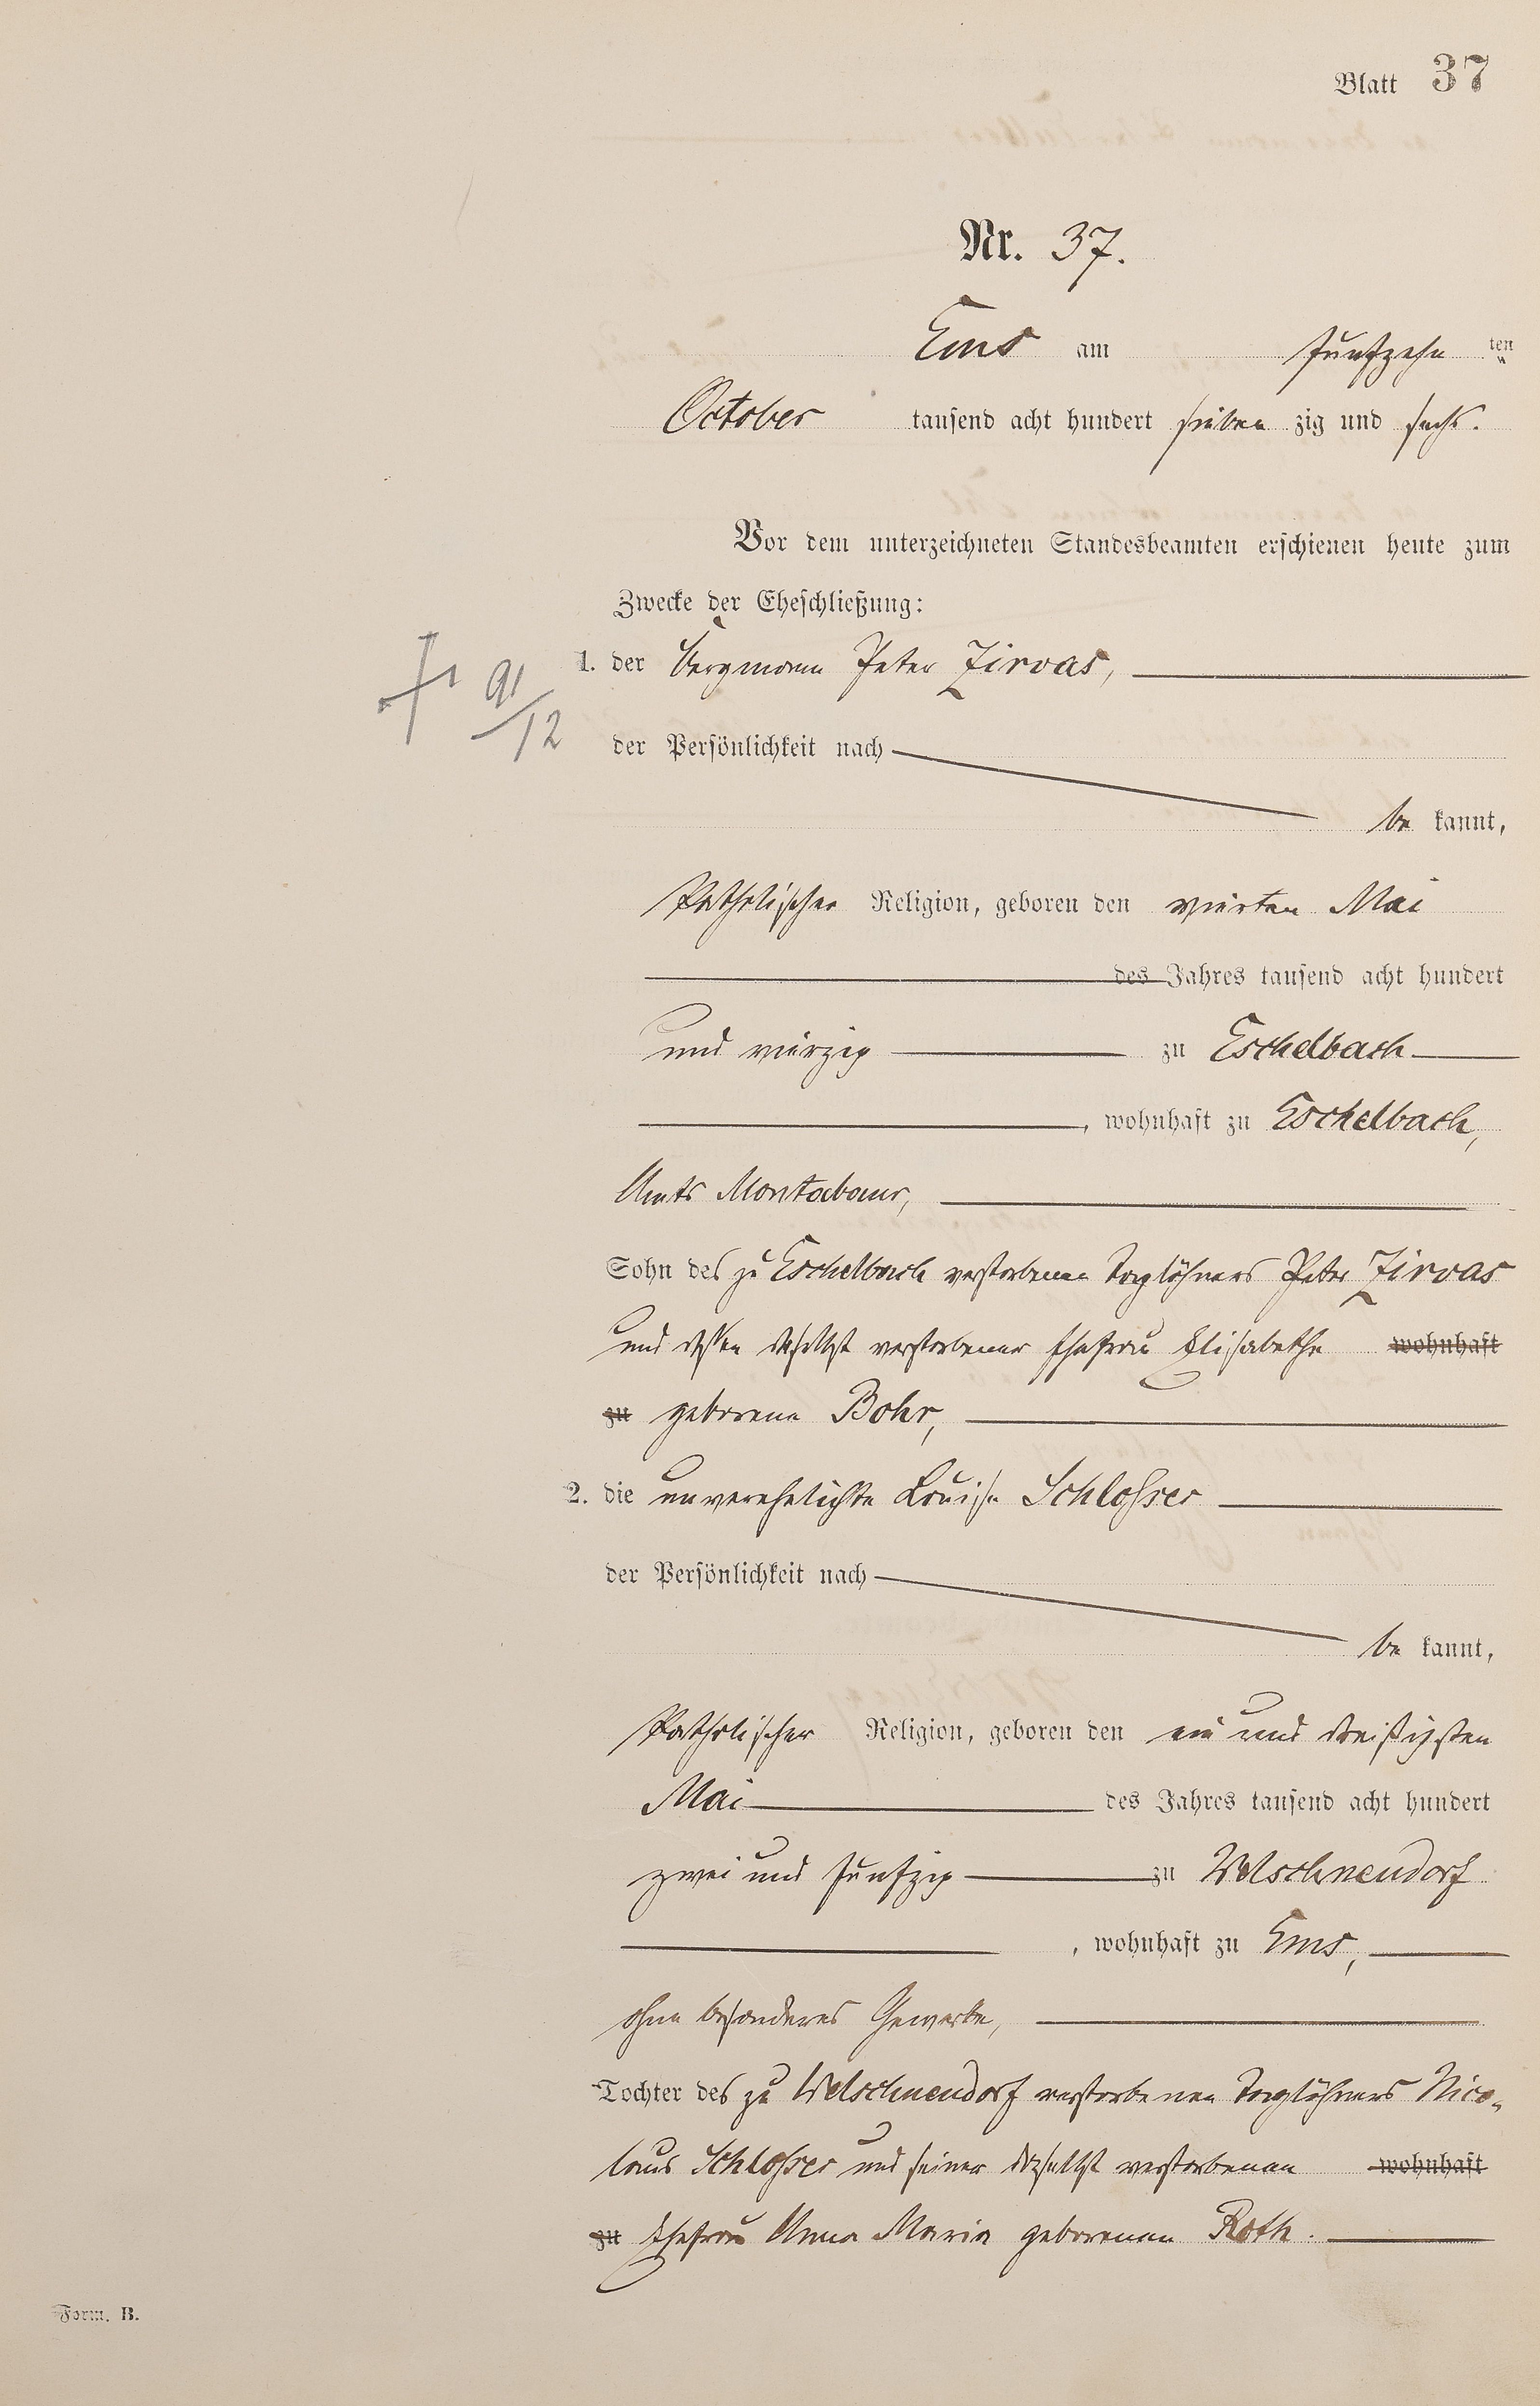 Blatt 37
Nr. 37.
Ems am fünfzehn ten
October tausend acht hundert sieben zig und sechs.
Vor dem unterzeichneten Standesbeamten erschienen heute zum
Zwecke der Eheschließung:
1. der Bergmann Peter Zirvas,
91/12
der Persönlichkeit nach
be kannt,
katholischer Religion, geboren den vierten Mai
des Jahres tausend acht hundert
und vierzig zu Eschelbach
, wohnhaft zu Eschelbach,
Amts Montabaur,
Sohn des zu Eschelbach verstorbenen Taglöhners Peter Zirvas
und dessen daselbst verstorbener Ehefrau Elisabethe wohnhaft
zu geborene Bohr,
2. die unverehelichte Louise Schlosser
der Persönlichkeit nach
be kannt,
katholischer Religion, geboren den ein und dreißigsten
Mai des Jahres tausend acht hundert
zwei und fünfzig zu Welschneudorf
, wohnhaft zu Ems,
ohne besonderes Gewerbe,
Tochter des zu Welschneudorf verstorbenen Taglöhners Nico-
laus Schlosser und seiner daselbst verstorbenen wohnhaft
zu Ehefrau Anna Maria geborenen Roth.
Form. B.